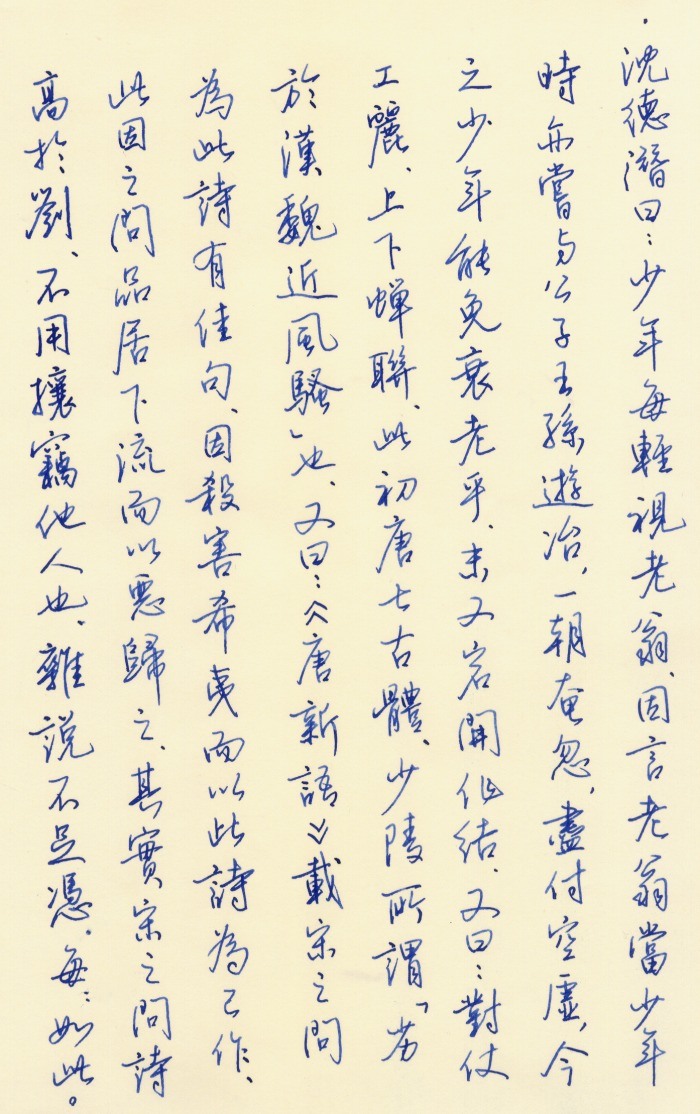 沈德潛曰：少年每輕視老翁、因言老翁當少年
時亦嘗与公子王孫遊冶，一朝奄忽，盡付空虛，今
之少年能免衰老乎、末又宕開作結、又曰：對仗
工麗、上下蟬聯、此初唐七古體、少陵所謂「劣
於漢魏近風騷」也、又曰：《唐新語》載宋之問
為此詩有佳句、因殺害希夷而以此詩為己作、
此因之問品居下流而以惡歸之、其實宋之問詩
高於劉、不用攘竊他人也、雜說不足憑、每：如此。